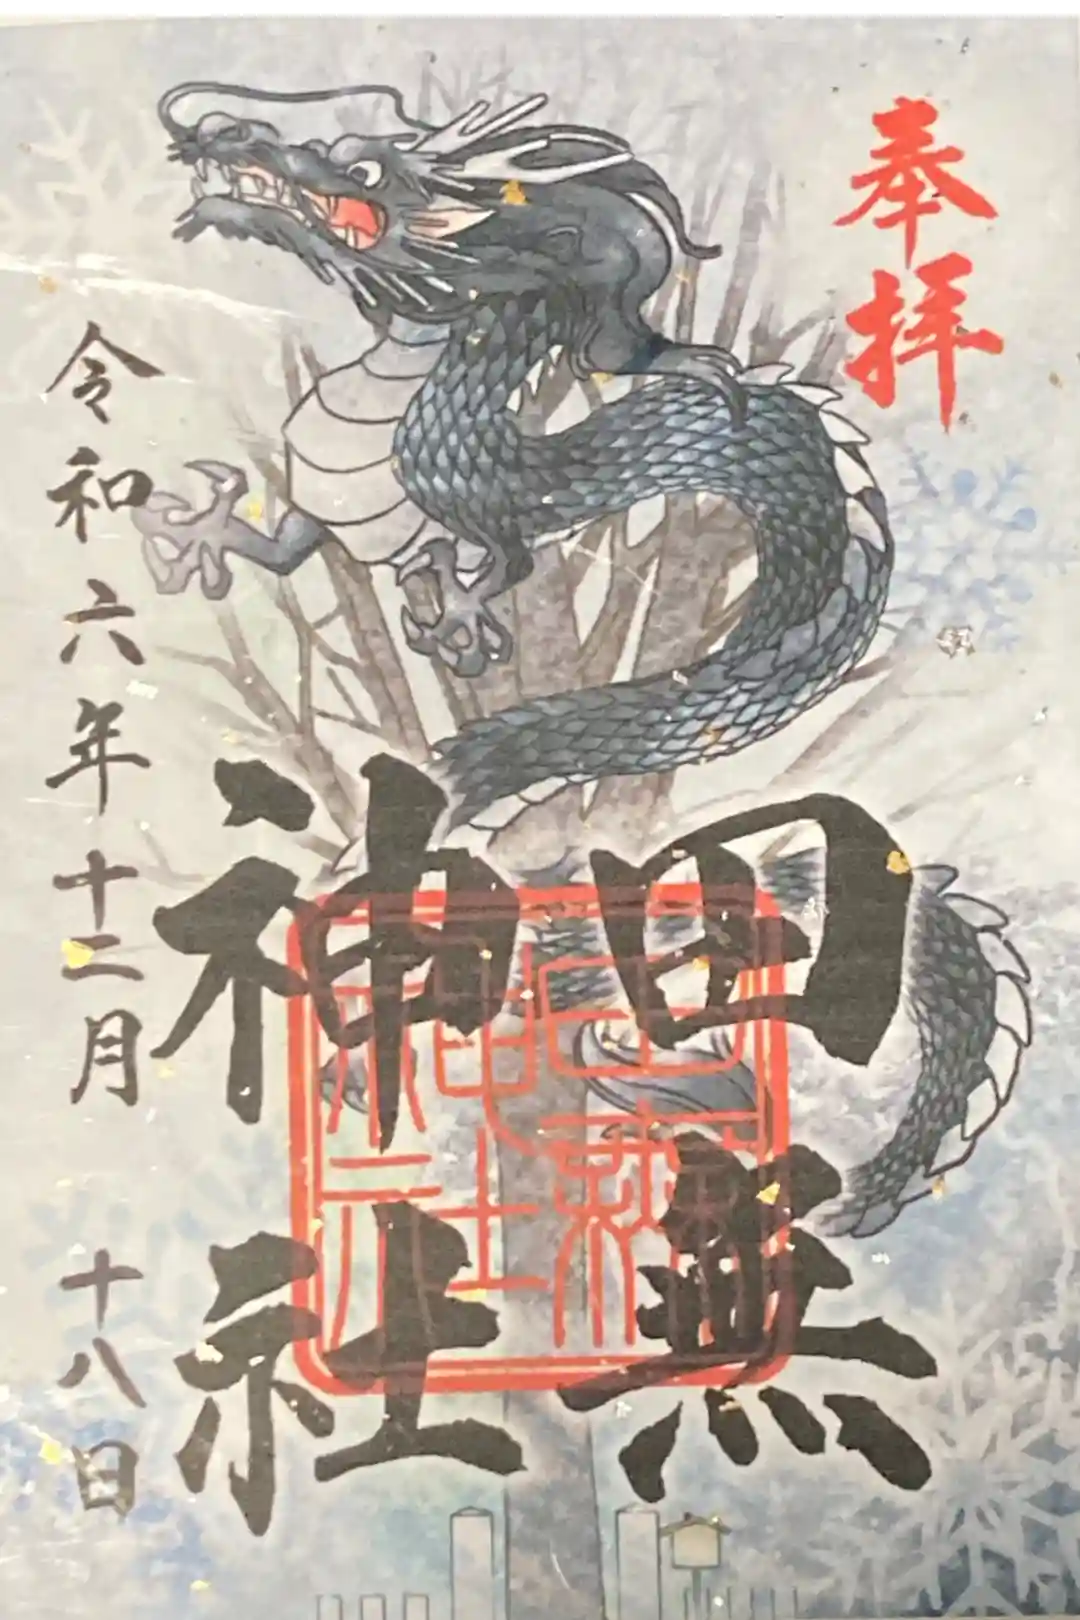 奉拝
田無
神社
令和六年十二月十八日
田無
神社